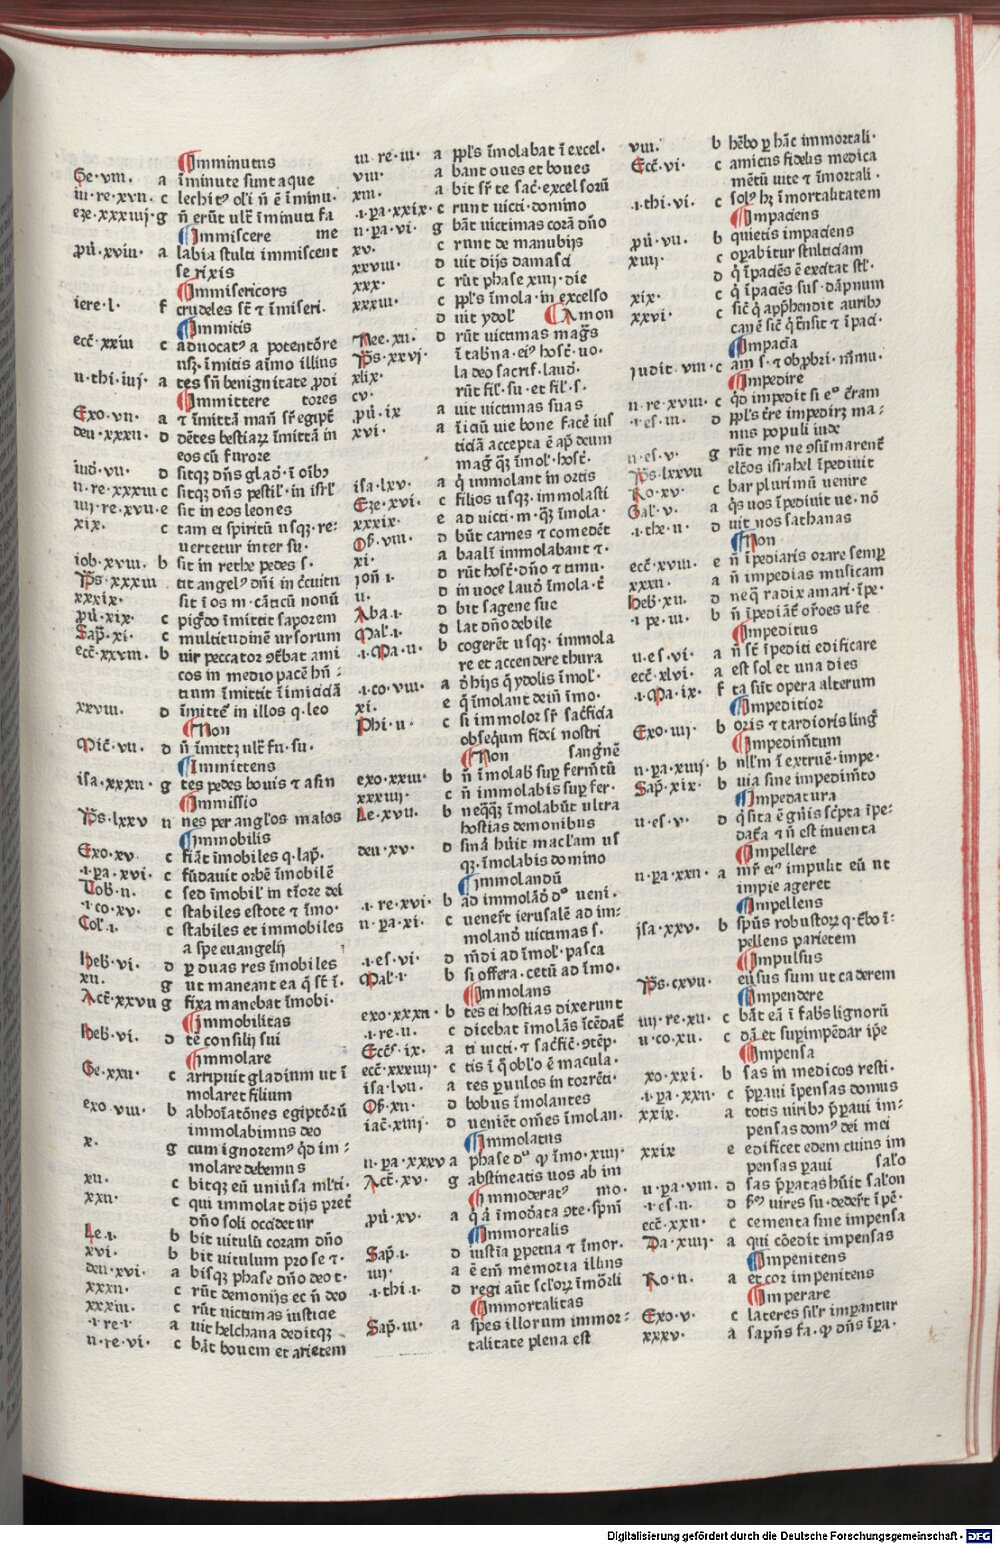 Imminutus
Ge·viii· a īminute sunt aque
iii·re·xvii· c lechitꝰ oli n̄ ē īminu·
eze·xxxiiij· g n̄ erūt ult̄ īminuti fa
Immiscere me
ꝓū·xviii· a labia stulti immiscent
se rixis
Immisericors
iere·l· f crudeles st̄ ⁊ īmiseri·
Immitis
ecc̄·xxiii c aduocatꝰ a potentōre
usꝫ·īmitis aīmo illius
ii·thi·iiij· a tes sn̄ benignitate ꝓdi
Immittere tores
Exo·vii· a ⁊ īmittā man̄ sr̄ egipt̄
deu·xxxii· d dētes bestiaꝝ īmittā in
eos cū furore
iud̄·vii· d sitqꝫ dn̄s glad̄·ī oībꝫ
ii·re·xxxiiii c sitqꝫ dn̄s pestil̄·in isrl̄
iiij·re·xvii·e sit in eos leones
xix· c tam ei spiritū usqꝫ·re:
uertetur inter su·
iob·xviii· b sit in rethe pedes s·
Ps̄·xxxiii tit angelꝰ dn̄i in c̄cuitu
xxxix· sit ī os m·cāticū nouū
ꝓū·xix· c pigꝰdo īmittit saporem
Sap̄·xi· c multitudinē ursorum
ecc̄·xxviii· b uir peccator ꝯt̄bat ami
cos in medio pacē hn̄:
tium īmittit īimiciciā
xxviii· d īmittet̄ in illos q·leo
Non
Mic̄·vii· d n̄ īmittꝫ ult̄ fu·su·
Immittens
isa·xxxii· g tes pedes bouis ⁊ asin
Immissio
Ps̄·lxxv ii nes per angl̄os malos
Immobilis
Exo·xv· c fiāt īmobiles q·lap̄·
·i·pa·xvi· c fūdauit orbē īmobilē
Tob·ii· c sed īmobil̄ in t̄ore dei
·i·co·xv· c stabiles estote ⁊ īmo·
Col̄·i· c stabiles et immobiles
a spe euangelij
heb̄·vi· d ꝑ duas res īmobiles
xii· g ut maneant ea q̄ st̄ ī·
Act̄·xxvii g fixa manebat īmobi·
Immobilitas
heb̄·vi· d tē consilij sui
Immolare
Ge·xxii· c arripuit gladium ut ī
molaret filium
exo viii· b abhoīatōnes egiptōrū
immolabimus deo
x· g cum ignoremꝰ q̄d im:
molare debemus
xii· b bitqꝫ eū uniūsa ml̄ti·
xxii· c qui immolat dijs pret̄
dn̄o soli occidetur
Le·i· b bit uitulū coram dn̄o
xvi· b bit uitulum pro se ⁊·
deu·xvi· a bisqꝫ phase dn̄o deo t·
xxxii· c rūt demonijs ec n̄ deo
xxxiii· c rūt uictimas iusticie
·i·re·i· a uit helchana deditqꝫ·
ii·re·vi· c bāt bouem et arietem
iii re·iii· a ppl̄s īmolabat ī excel·
viii· a bant oues et boues
xiii· a bit sr̄ te sac̄·excelsorū
·i·pa·xxix· c runt uicti·domino
ii·pa·vi· g bāt uictimas corā dn̄o
xv· c runt de manubijs
xxviii· d uit dijs damasci
xxx· c rūt phase xiiij·die
xxxiii· c ppl̄s īmola·in excelso
d uit ydol̄ Amon
Nee·xii· d rūt uictimas maḡs
Ps̄·xxvj· ī tab̄na·eiꝰ host̄·uo·
xlix· la deo sacrif·laud̄·
cv· rūt fil̄·su·et fil̄·s·
ꝓū·ix a uit uictimas suas
xvi· a īiciū uie bone facē ius
ticiā accepta ē ap̄ deum
maḡ qꝫ īmol̄·host̄·
isa·lxv· a q̄ immolant in ortis
Eze·xvi· c filios usqꝫ·immolasti
xxxix· e ad uicti·m·qꝫ īmola·
Os̄·viii· d būt carnes ⁊ comedēt
xi· a baali immolabant ⁊·
ion̄ i· d rūt host̄·dn̄o ⁊ timu·
ii· d in uoce laud̄ īmola·t̄
Aba·i· d bit sagene sue
Mal̄·i· d lat dn̄o debile
·i·Ma·ii· b cogerēt usqꝫ·immola
re et accendere thura
·i·co·viii· a d̄ hijs q̄ ydolis īmol̄·
xi· e q̄ īmolant dein̄ īmo·
Phi·ii· c si immolor sr̄ sac̄ficia
obseq̄um fidei nostri
Non sangnē
exo·xxiii· b n̄ īmolab̄ sup̱ ferm̄tū
xxxiiij· c n̄ immolabis sup̱ fer·
Le·xvii· b neqꝗꝫ īmolabūt ultra
hostias demonibus
deu·xv· d sinā hūit maclam us
qꝫ·īmolabis domino
Immolandū
·i·re·xvi· b ad immolād̄ dꝰ ueni·
ii·pa·xi· c uener̄t ierusalē ad im:
moland̄ uictimas s·
·i·es·vi· d m̄di ad īmol̄·pasca
Mal̄·i· b si offera·cetū ad īmo·
Immolans
exo·xxxii· b tes ei hostias dixerunt
·i·re·ii· c dicebat īmolās īcēdat̄
Ecc̄s·ix· a ti uicti·⁊ sac̄fic̄·ꝯtēp̄·
ecc̄·xxxiiij· c tis ī q̄ obl̄o ē macula·
isa·lvii· a tes puulos in torrēti·
Os̄·xii· d bobus īmolantes
iac̄·xiiij· d ueniēt om̄es īmolan·
Immolatus
ii·pa·xxxv a phase dꝰ qꝫ īmo·xiiij·
Act̄·xv· g abstineatis uos ab im
Immoderatꝰ mo·
ꝓū·xv· a q̄ ā īmod̄ata ꝯte·spm̄
Immortalis
Sap̄·i· d iustīa ꝑpetua ⁊ īmor·
iiij· a ē em̄ memoria illius
·i·thi·i· d regi aūt sclor̄ꝝ īmōrli
Immortalitas
Sap̄·iii· a spes illorum immor:
talitate plena est
viii· b hēbo ꝑ hāc immortali·
Ecc̄·vi· c amicus fidelis medica
mētū uite ⁊ īmortali·
·i·thi·vi· c solꝰ hꝫ īmortalitatem
Impaciens
ꝓū·vii· b quietis impaciens
xiij· c oꝑabitur stulticiam
d q̄ īpaciēs ē excitat stl̄·
xix· c q̄ īpaciēs sus·dāpnum
xxvi· c sic̄ q̄ app̄hendit auribꝫ
canē sic̄ q̄ t̄nsit ⁊ īpaci·
Impacia
iudit·viii·c am s·⁊ ob ꝓbri·m̄mu·
Impedire
ii·re·xviii· c q̄d impedit si eꝰ c̄ram
·i·es·iii· d ppl̄s t̄re impedirꝫ ma:
nus populi iude
ii·es·v· g rūt me ne ꝯsūmarent̄
Ps̄·lxxvii el̄cōs israhel īpediuit
Ro·xv· c bar plurimū uenire
Gal̄·v· a q̄s uos īpediuit ue·nō
·i·the·ii· d uit nos sathanas
Non
ecc̄·xviii· e n̄ īpediaris orare semp̱
xxxii· a n̄ impedias musicam
heb̄·xii· d neq̄ radix amari·īpe·
·i pe·iii· b n̄ īpediāt̄ or̄oes ur̄e
Impeditus
ii·es·vi· a n̄ st̄ īpediti edificare
ecc̄·xlvi· a est sol et una dies
·i·Ma·ix· f ta sūt opera alterum
Impeditior
Exo·iiij· b oris ⁊ tardioris linḡ
Impedim̄tum
ii·pa·xiiij· b nll̄m ī extruē·impe·
Sap̄·xix· b uia sine impedim̄to
Impedatura
ii·es·v· d q̄sita ē gn̄is sc̄pta īpe:
data ⁊ n̄ est inuenta
Impellere
ii·pa·xxii· a mr̄ eiꝰ impulit eū ut
impie ageret
Impellens
isa·xxv· b spūs robustoꝝ q·t̄bo ī:
pellens parietem
Impulsus
Ps̄·cxvii· eūsus sum ut caderem
Impendere
iiij·re·xii· c bāt eā ī fab̄s lignorū
ii·co·xii· c dā et sup̱impēdar ip̄e
Impensa
xo·xxi· b sas in medicos resti·
·i·pa·xxii· c p̄paui īpensas domus
xxix· a totis uiribꝫ p̄paui im:
pensas domꝰ dei mei
xxix e edificet edem cuius im
pensas paui salo
ii·pa·viii· d sas p̄paratas hūit salon
·i·es·ii· d bꝰ uires su·dedert īpē·
ecc̄·xxii· c cementa sine impensa
Da·xiiij· a qui cōedit impensas
Impenitens
Ro·ii· a et cor impenitens
Imperare
Exo·v· c lateres sil̄r impantur
xxxv· a sapn̄s fa·qꝫ dn̄s īpa·
Digitalisierung gefördert durch die Deutsche Forschungsgemeinschaft - DFG